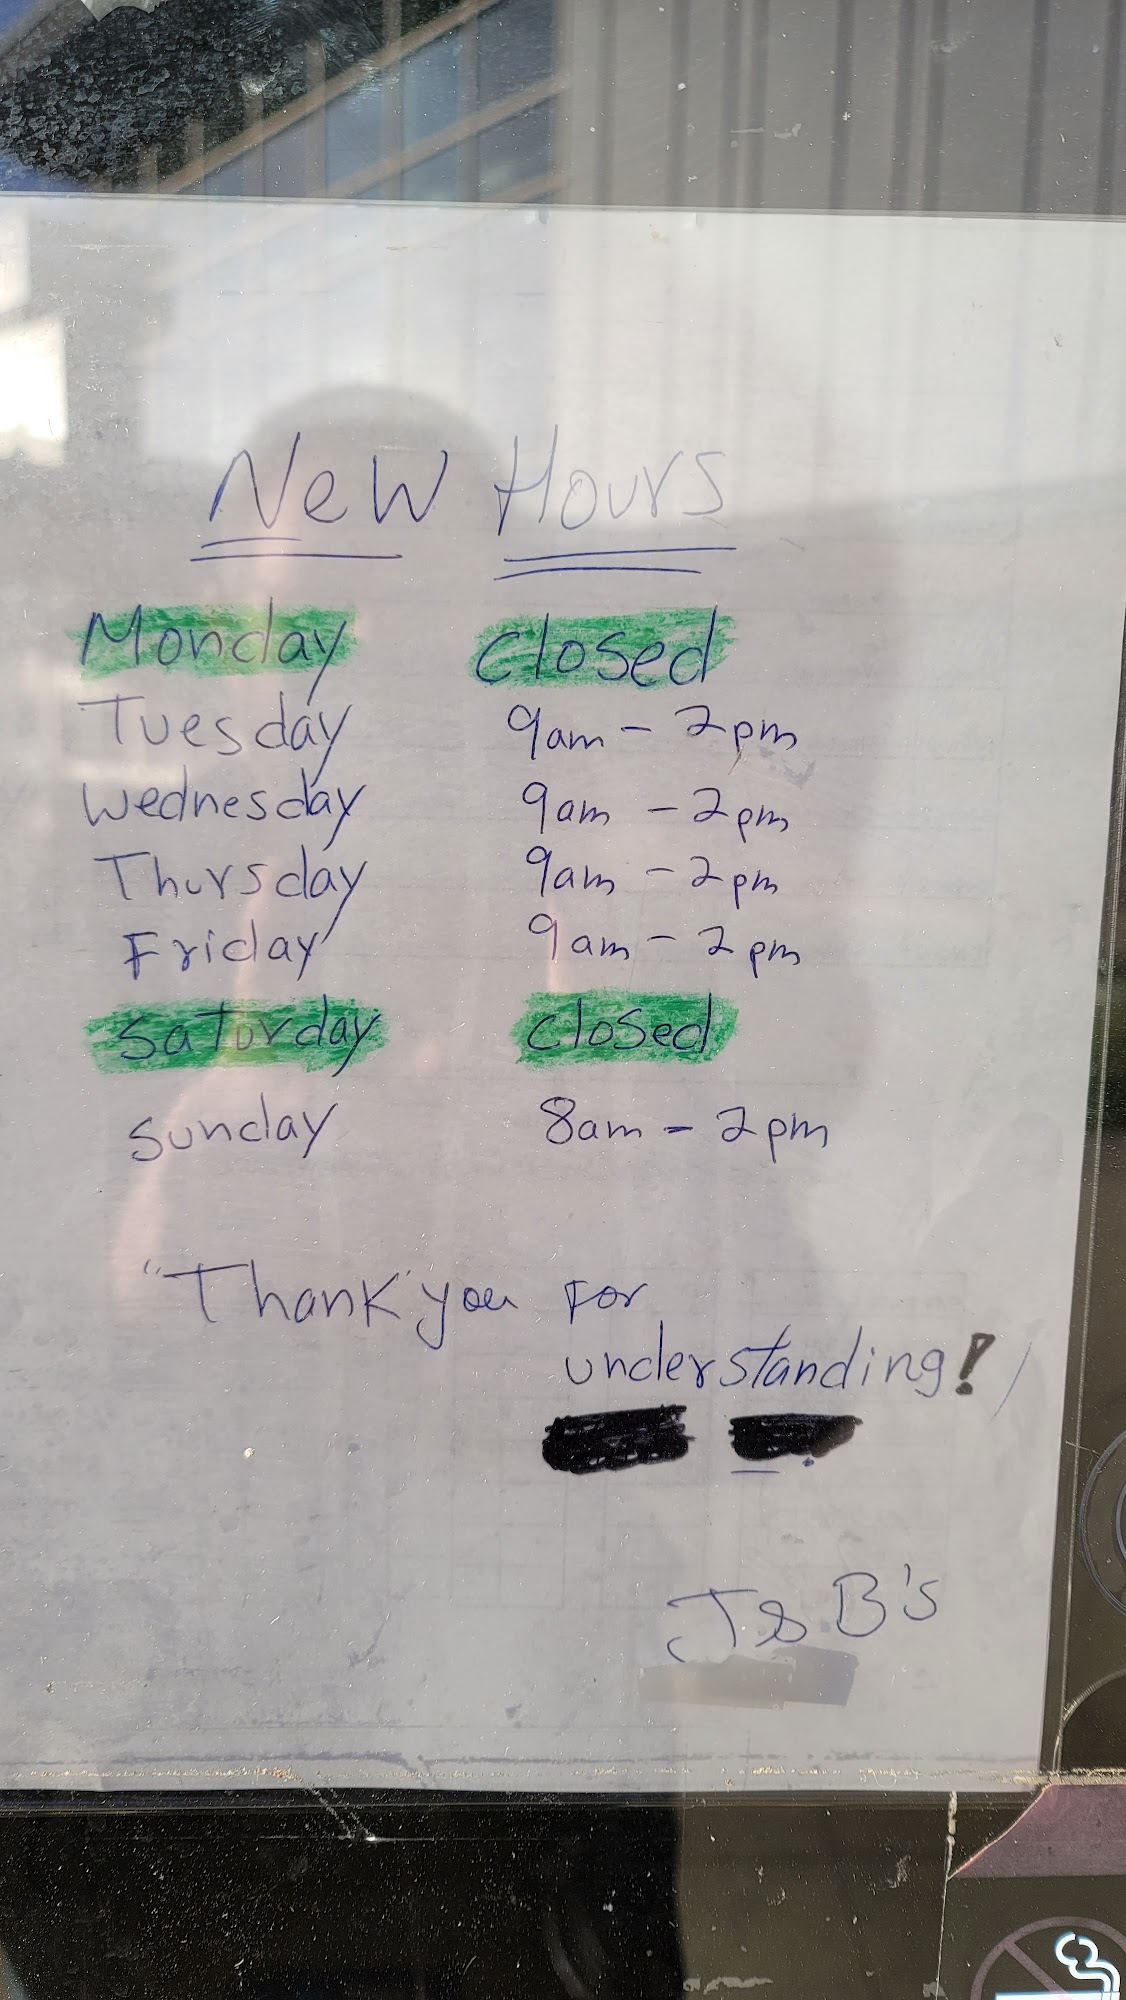 New Hours
Monday closed
Tuesday 9am - 2pm
Wednesday 9am - 2pm
Thursday 9am - 2pm
Friday 9am - 2pm
Saturday closed
Sunday 8am - 2pm
"Thank" you For
understanding!
J & B's